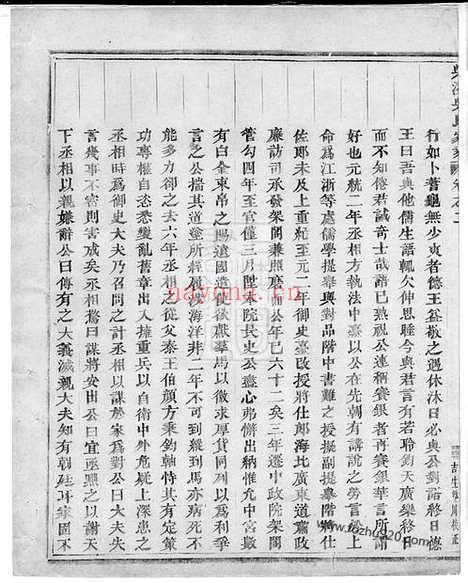 行如卜蓍龜無少爽者德王益敬之遇休沐日必與公對語終日德
王曰吾與他儒生語輒欠伸思睡今與君言有若聆鈞天廣樂終日
而不知倦君誠奇士哉語已熟視公連稱賽銀者再賽銀華言所謂
好也元統二年丞相方執法中臺以公在先朝有講說之勞言于上
命爲江浙等處儒學提舉與對品階中書難之授提副提舉階將仕
佐郎未及上重紀至元二年御史臺改授將仕郎海北廣東道肅政
廉訪司承發架閣兼照磨而公年已六十二矣三年遷中政院架閣
管勾四年至官僅三月陞本院長史公盡心弗懈出納惟允中宮數
有白金束帛之賜遠國遣使者獻羣馬以徼求厚貨同列以爲利爭
言之公搘其道塗所經嶺被海洋非二年不可到馬亦病死不
能多力卻之去六年丞相之從父秦王伯顏方秉鈞軸恃其有
功專權自恣悉變亂舊章出入擁重兵以自衛中外危疑上深患之
丞相時爲御史大夫乃召問之計丞相歸以謀於家爲對公曰大夫失
言幾事不密則害成矣丞相驚曰謀將安出公曰宜亟黜之以謝天
下丞相以親嫌辭公曰傳有之大義滅親大夫知有朝廷耳家固不